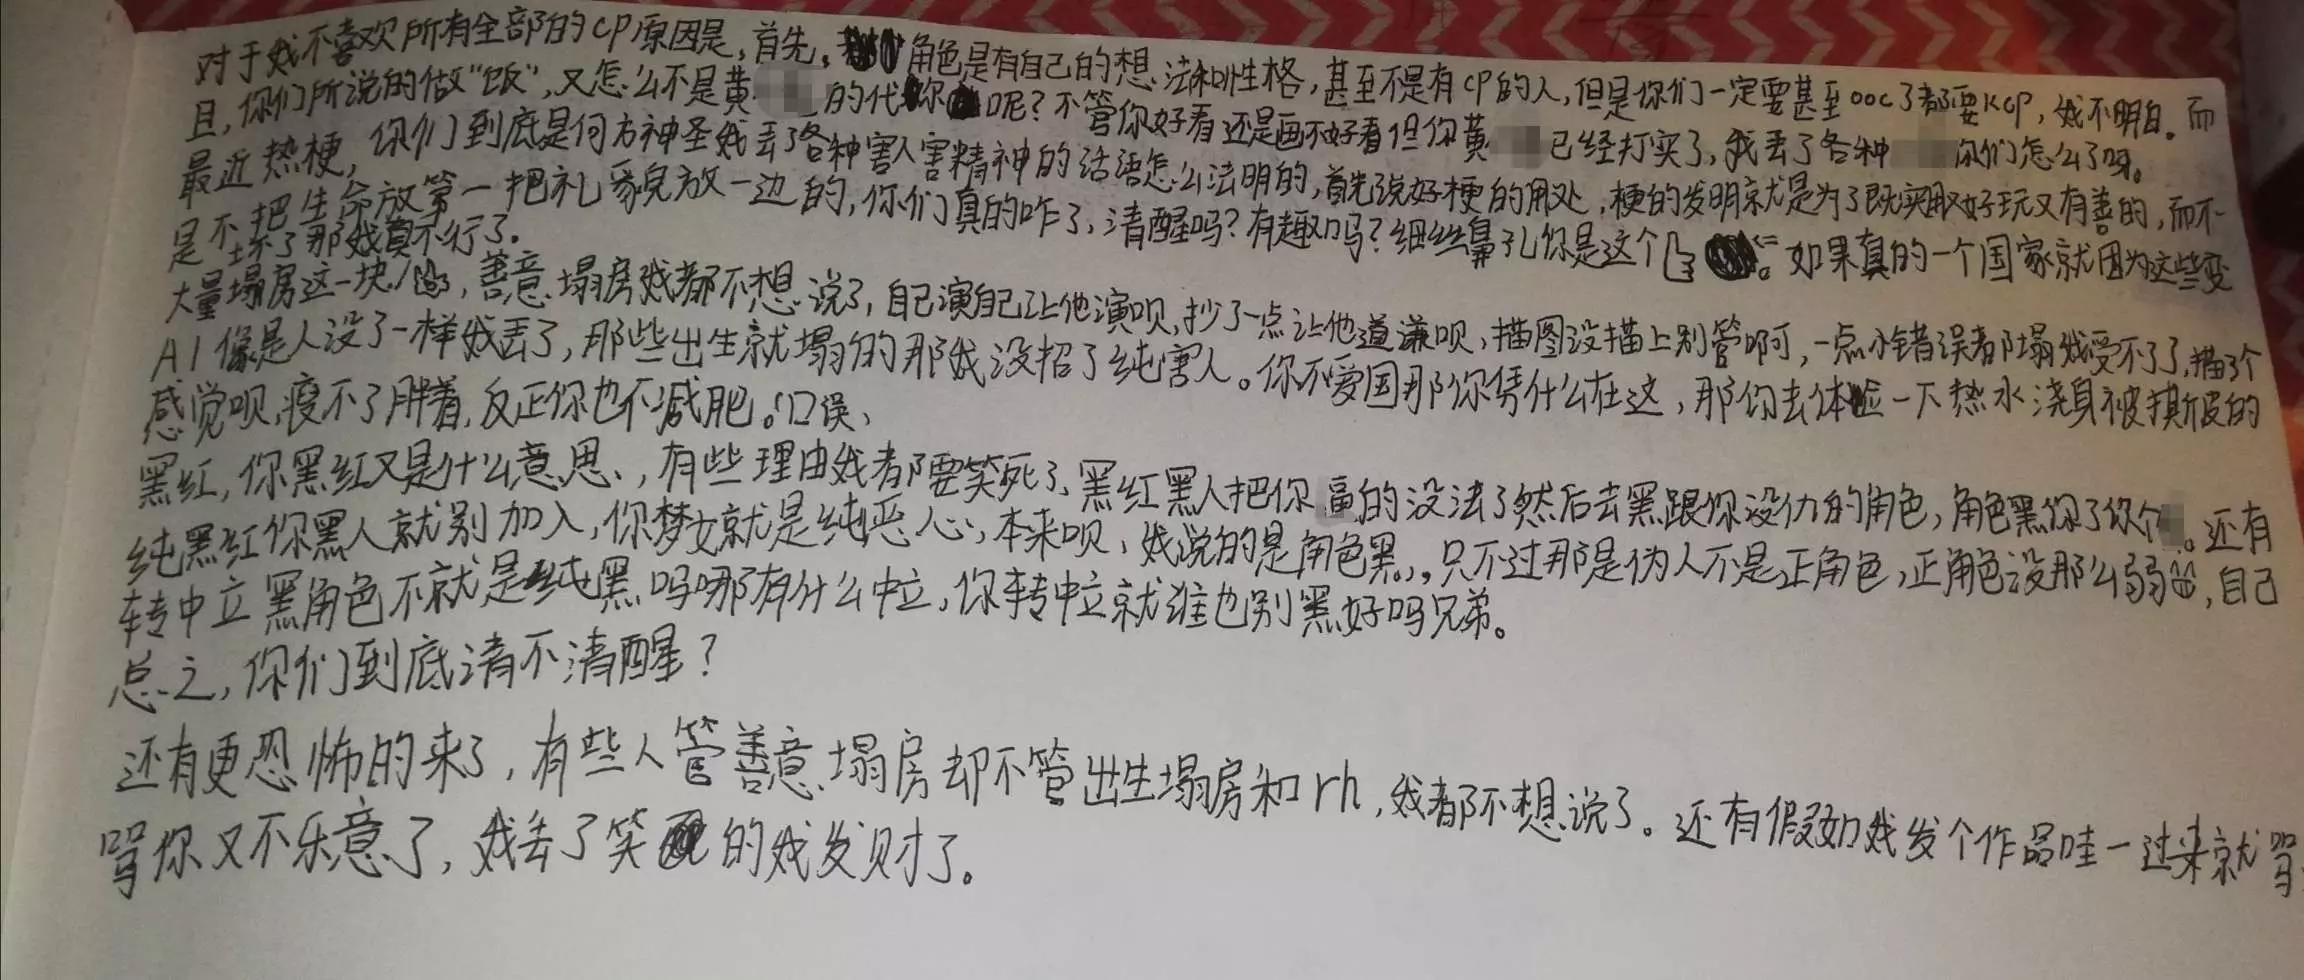 对于我不喜欢所有全部的cp原因是,首先,角色是有自己的想法和性格,甚至不是有cp的人,但是你们一定要甚至ooc了都要kcp,我不明白。而
且,你们所说的做“饭”,又怎么不是黄的代你呢?不管你好看还是画不好看但你黄已经打实了,我丢了各种你们怎么了呀。
最近热梗,你们到底是何方神圣我丢了各种害人害精神的话语怎么法明的,首先说好梗的用处,梗的发明就是为了既实用又好玩又有善的,而不
是不把生命放第一把礼貌放一边的,你们真的咋了,清醒吗?有趣吗?细丝鼻孔你是这个。如果真的一个国家就因为这些变
坏了那我真不行了。
大量塌房这一块/,善意塌房我都不想说了,自己演自己让他演呗,抄了一点让他道谦呗,描图没描上别管啊,一点小错误都塌我受不了了,描了个
AI像是人没了一样我丢了,那些出生就塌的那我没招了纯害人。你不爱国那你凭什么在这,那你去体验一下热水浇身被撕皮的
感觉呗,瘦不了胖着,反正你也不减肥。(口误、
黑红,你黑红又是什么意思、,有些理由我都要笑死了、黑红黑人把你逼的没法了然后去黑跟你没仇的角色,角色黑你了你个。还有
纯黑红你黑人就别加入,你梦女就是纯恶心,本来呗、我说的是角色黑、,只不过那是伪人不是正角色,正角色没那么弱智,自己
转中立黑角色不就是纯黑吗哪有什么中立,你转中立就谁也别黑好吗兄弟。
总之,你们到底清不清醒?
还有更恐怖的来了,有些人管善意塌房却不管出生塌房和rh,我都不想说了。还有假如我发个作品哇一过来就骂
骂你又不乐意了,我丢了笑的我发财了。